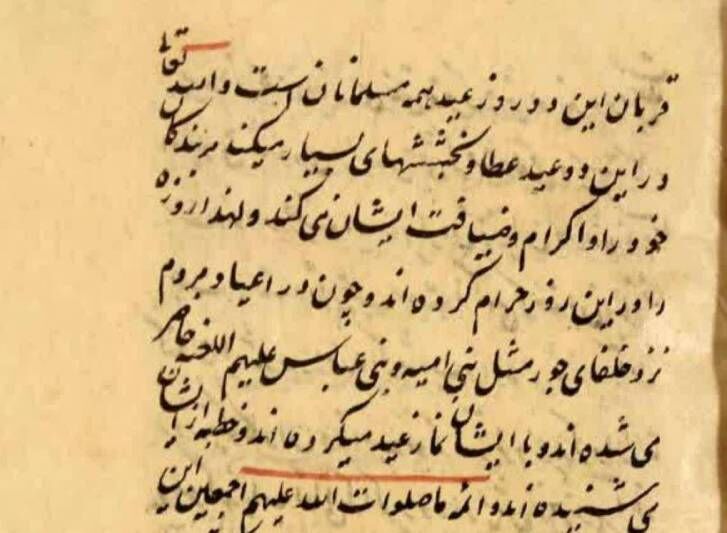 قربان این دو روز عید همه مسلمانان است و الله تعالی
در این دو عید عطا و بخششهای بسیار میکند بر بندگان
خود و اکرام و ضیافت ایشان می کند و لهذا روزه
را در این روز حرام کرده اند و چون در اعیاد مردم
نزد خلفای جور مثل بنی امیه و بنی عباس علیهم اللعنه حاضر
می شده اند و با ایشان نماز عید میکرده اند و خطبه از ایشان
می شنیده اند و ائمه ما صلوات الله علیهم اجمعین این